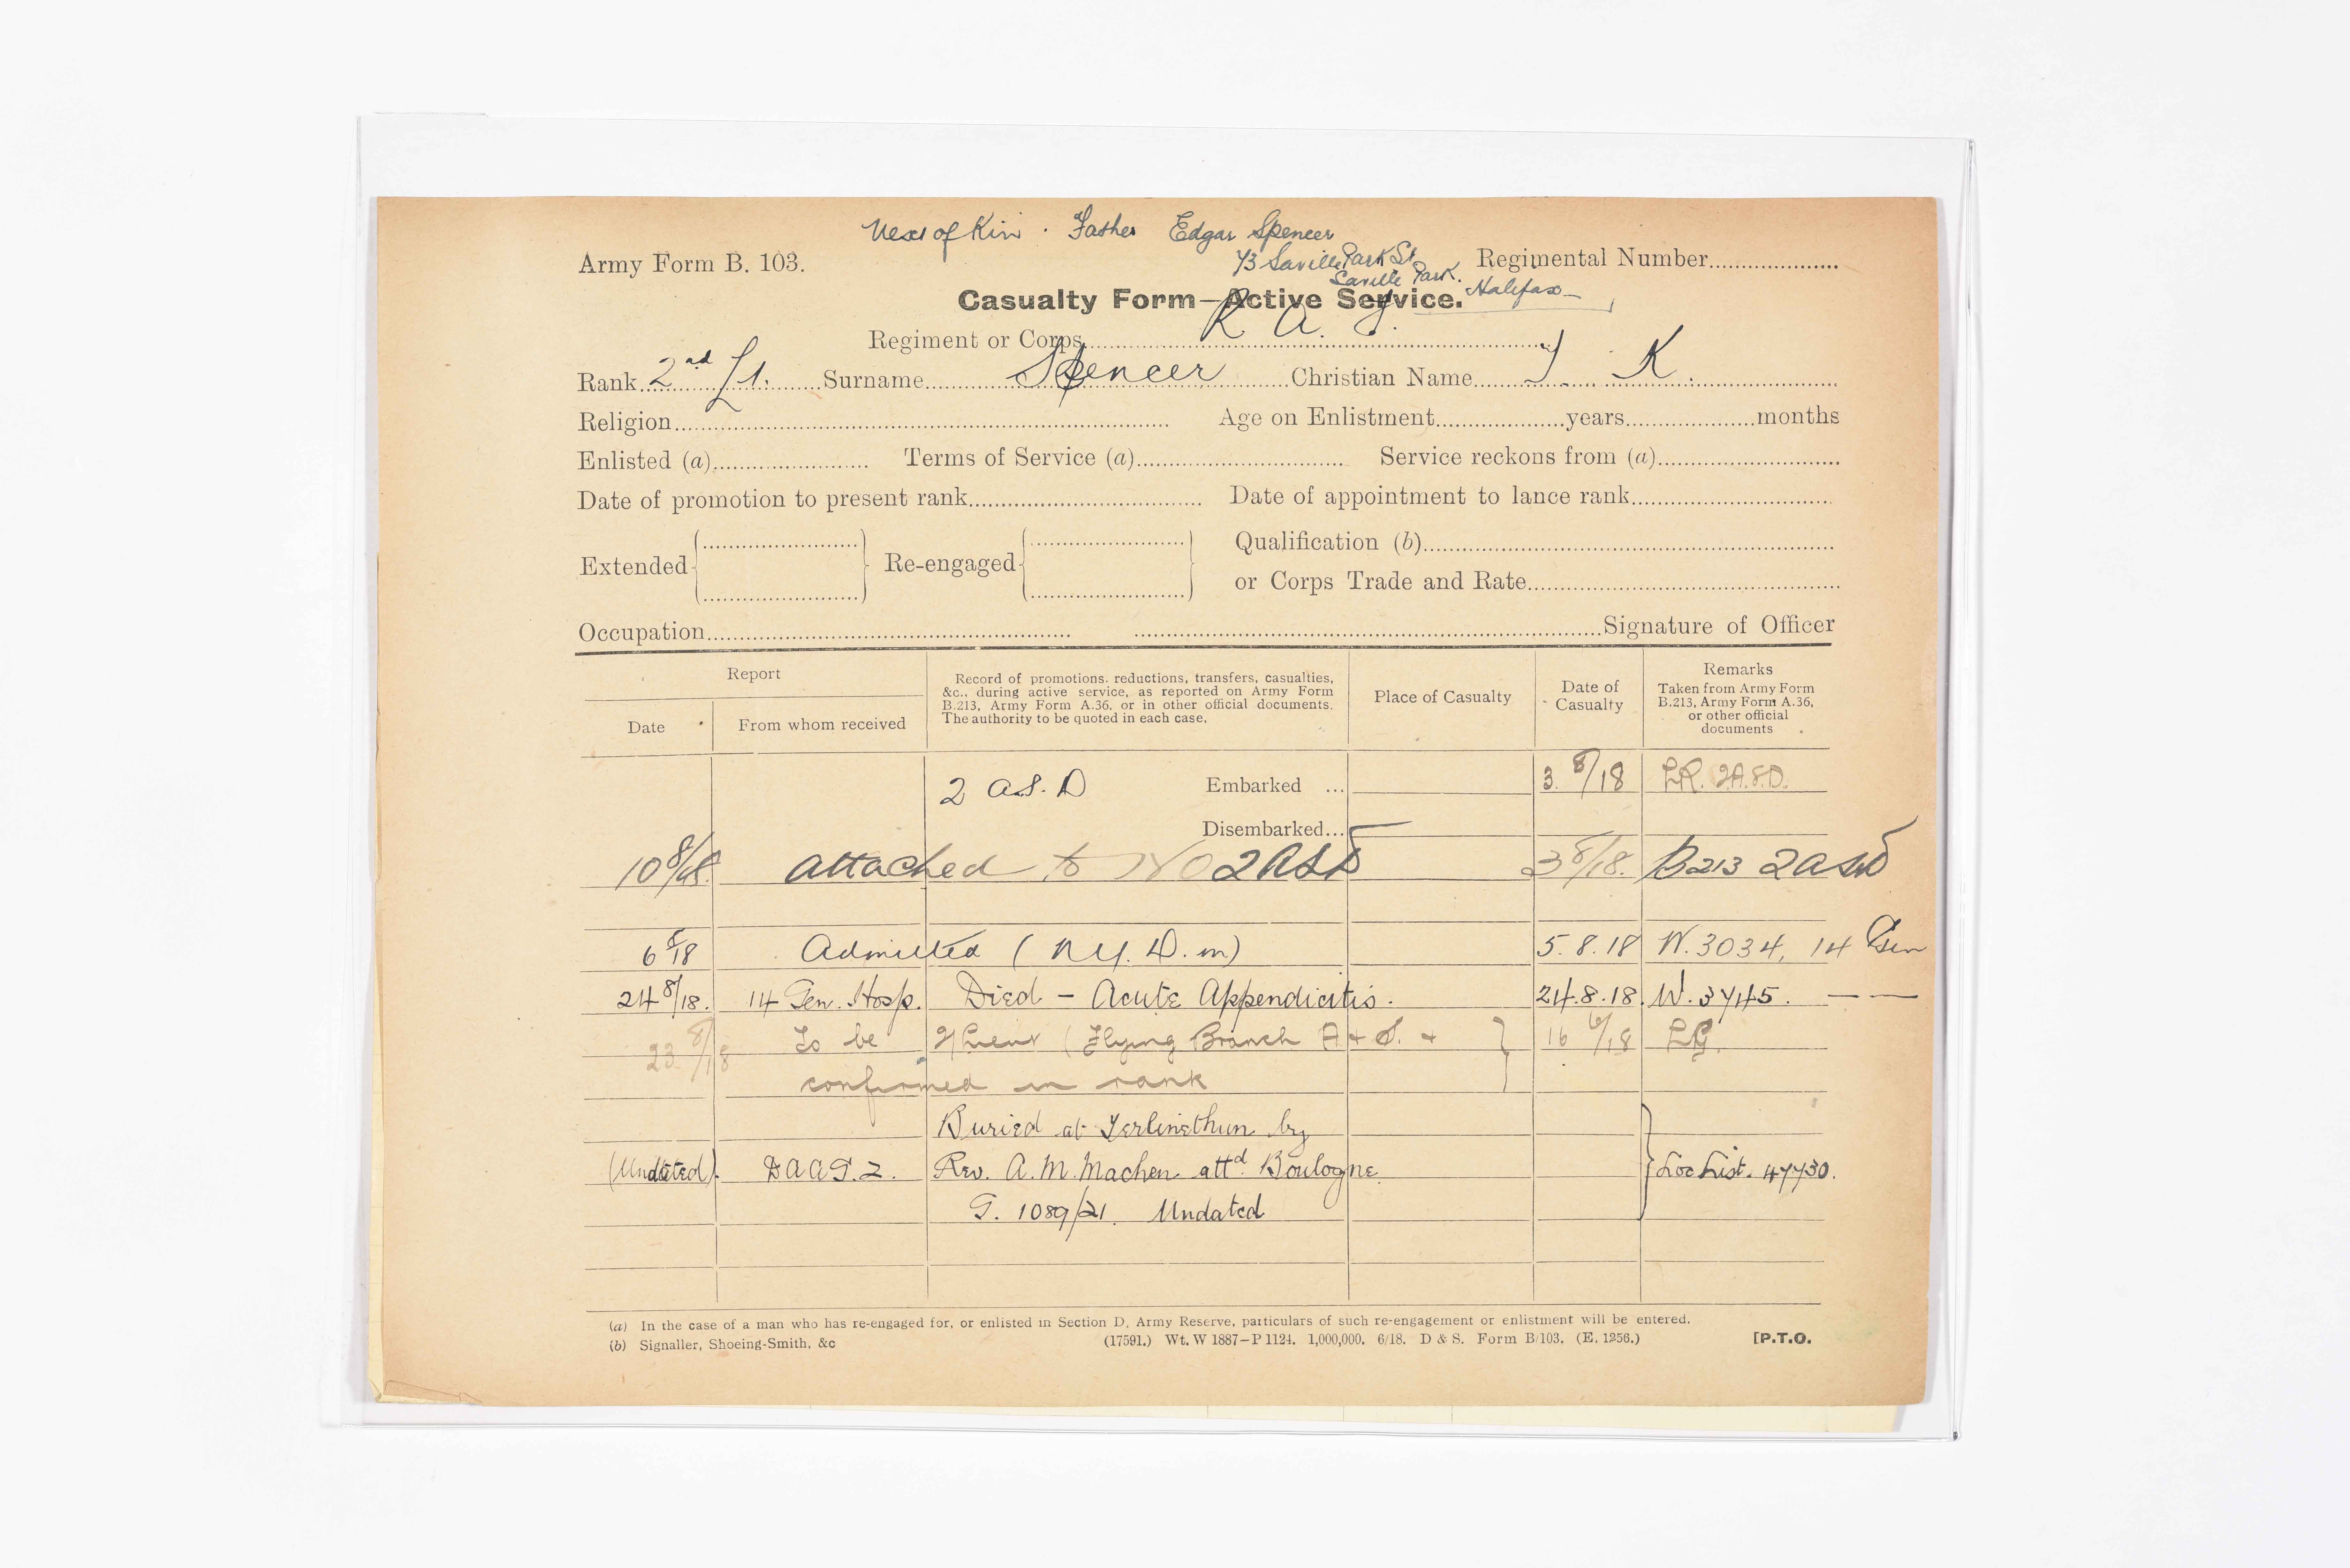 Next of Kin . Father Edgar Spencer
Army Form B. 103. 73 Saville Park St. Regimental Number
Saville Park.
Casualty Form—Active Service. Halifax
Regiment or Corps R A F.
Rank 2nd Lt. Surname Spencer Christian Name J K.
Religion Age on Enlistment years months
Enlisted (a) Terms of Service (a) Service reckons from (a)
Date of promotion to present rank Date of appointment to lance rank
Extended Re-engaged Qualification (b)
or Corps Trade and Rate
Occupation Signature of Officer
Report
Date From whom received
Record of promotions, reductions, transfers, casualties,
&c., during active service, as reported on Army Form
B.213, Army Form A.36, or in other official documents.
The authority to be quoted in each case.
Place of Casualty
Date of
Casualty
Remarks
Taken from Army Form
B.213, Army Form A.36,
or other official
documents
2 A.S.D Embarked ... 3 8/18 2.A.S.D.
Disembarked...
10 8/18 attached to No 2 ASD 3 8/18. B213 2 ASD
6 8/18 Admitted (N.Y.D.m) 5.8.18 W.3034, 14 Gen
24 8/18. 14 Gen. Hosp. Died - Acute Appendicitis. 24.8.18 W.3745. — —
23 8/18 To be 2/Lieut (Flying Branch A & S. & 16 6/18 LG.
confirmed in rank
Buried at Terlincthun by
(Undated). DAAG.2. Rev. A.M. Machen attd Boulogne. Loc List. 47730.
G. 1089/21. Undated
(a) In the case of a man who has re-engaged for, or enlisted in Section D, Army Reserve, particulars of such re-engagement or enlistment will be entered.
(b) Signaller, Shoeing-Smith, &c (17591.) Wt. W 1887—P 1124. 1,000,000. 6/18. D & S. Form B/103. (E. 1256.) [P.T.O.